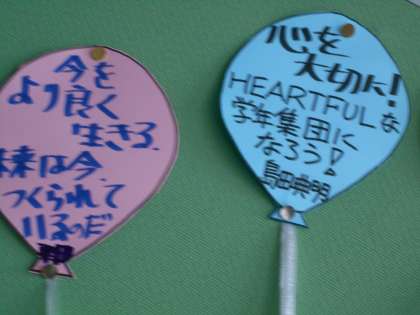 今を
より良く
生きろ
未来は今、
つくられて
いるのだ
心を
大切に!
HEARTFULな
学年集団に
なろう!
島田典明